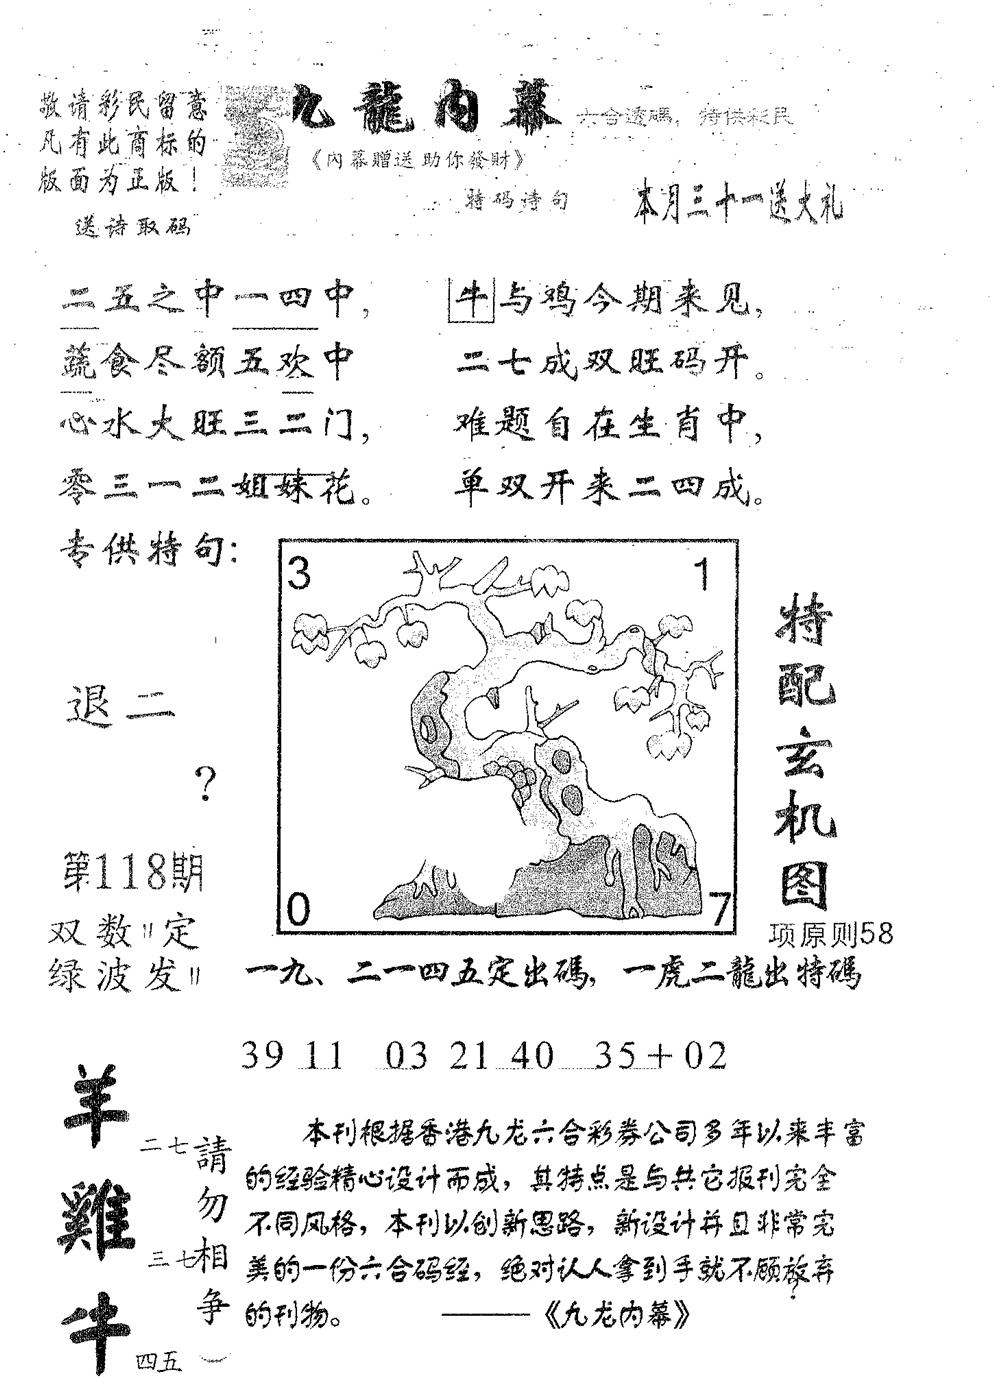 敬请彩民留意
凡有此商标的
版面为正版！
送诗取码
九龍内幕
六合透碼，特供彩民
《内幕贈送 助你發財》
特码诗句
本月三十一送大礼
二五之中一四中，
蔬食尽额五欢中
心水大旺三二门，
零三一二姐妹花。
牛与鸡今期来见，
二七成双旺码开。
难题自在生肖中，
单双开来二四成。
专供特句：
退二
？
3
1
0
7
特配玄机图
第118期
双数〃定
绿波发〃
项原则58
一九、二一四五定出碼，一虎二龍出特碼
39 11 03 21 40 35+02
羊
二七
雞
三七
牛
四五
請勿相争
本刊根据香港九龙六合彩券公司多年以来丰富
的经验精心设计而成，其特点是与其它报刊完全
不同风格，本刊以创新思路，新设计并且非常完
美的一份六合码经，绝对认人拿到手就不愿放弃
的刊物。 ——《九龙内幕》